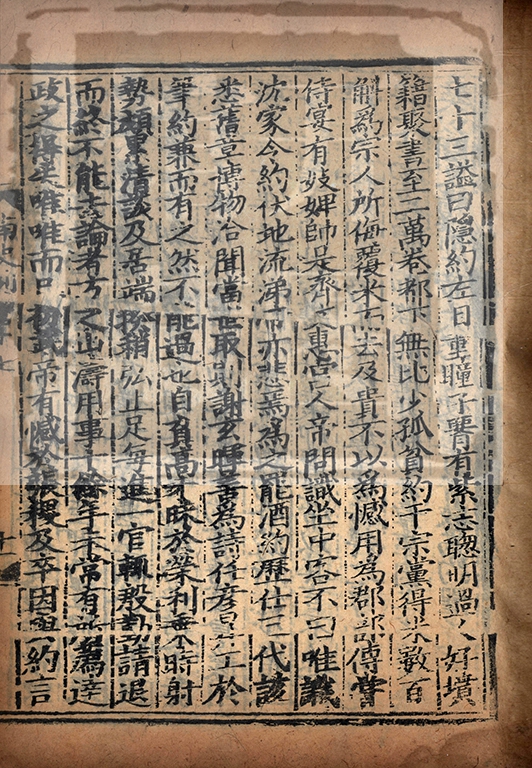 七十三謚曰隱約左目重瞳子腰有紫志聰明過人好墳
籍聚書至二萬卷都下無比少孤貧約干宗黨得米數百
斛爲宗人所侮覆米而去及貴不以爲憾用爲郡部傳嘗
侍宴有妓婢師是齊文惠宮人帝問識坐中客不曰唯識
沈家令約伏地流涕帝亦悲焉爲之罷酒約歷仕三代該
悉舊章博物洽聞當世取則謝玄暉善爲詩任彥昇工於
筆約兼而有之然不能過也自負高才昧於榮利乘時射
勢頗累清談及居端揆稍弘止足每進一官輒殷勤請退
而終不能去論者方之山濤用事十餘年未常有所薦達
政之得失唯唯而已初武帝有憾於張稷及卒因與約言
南史列